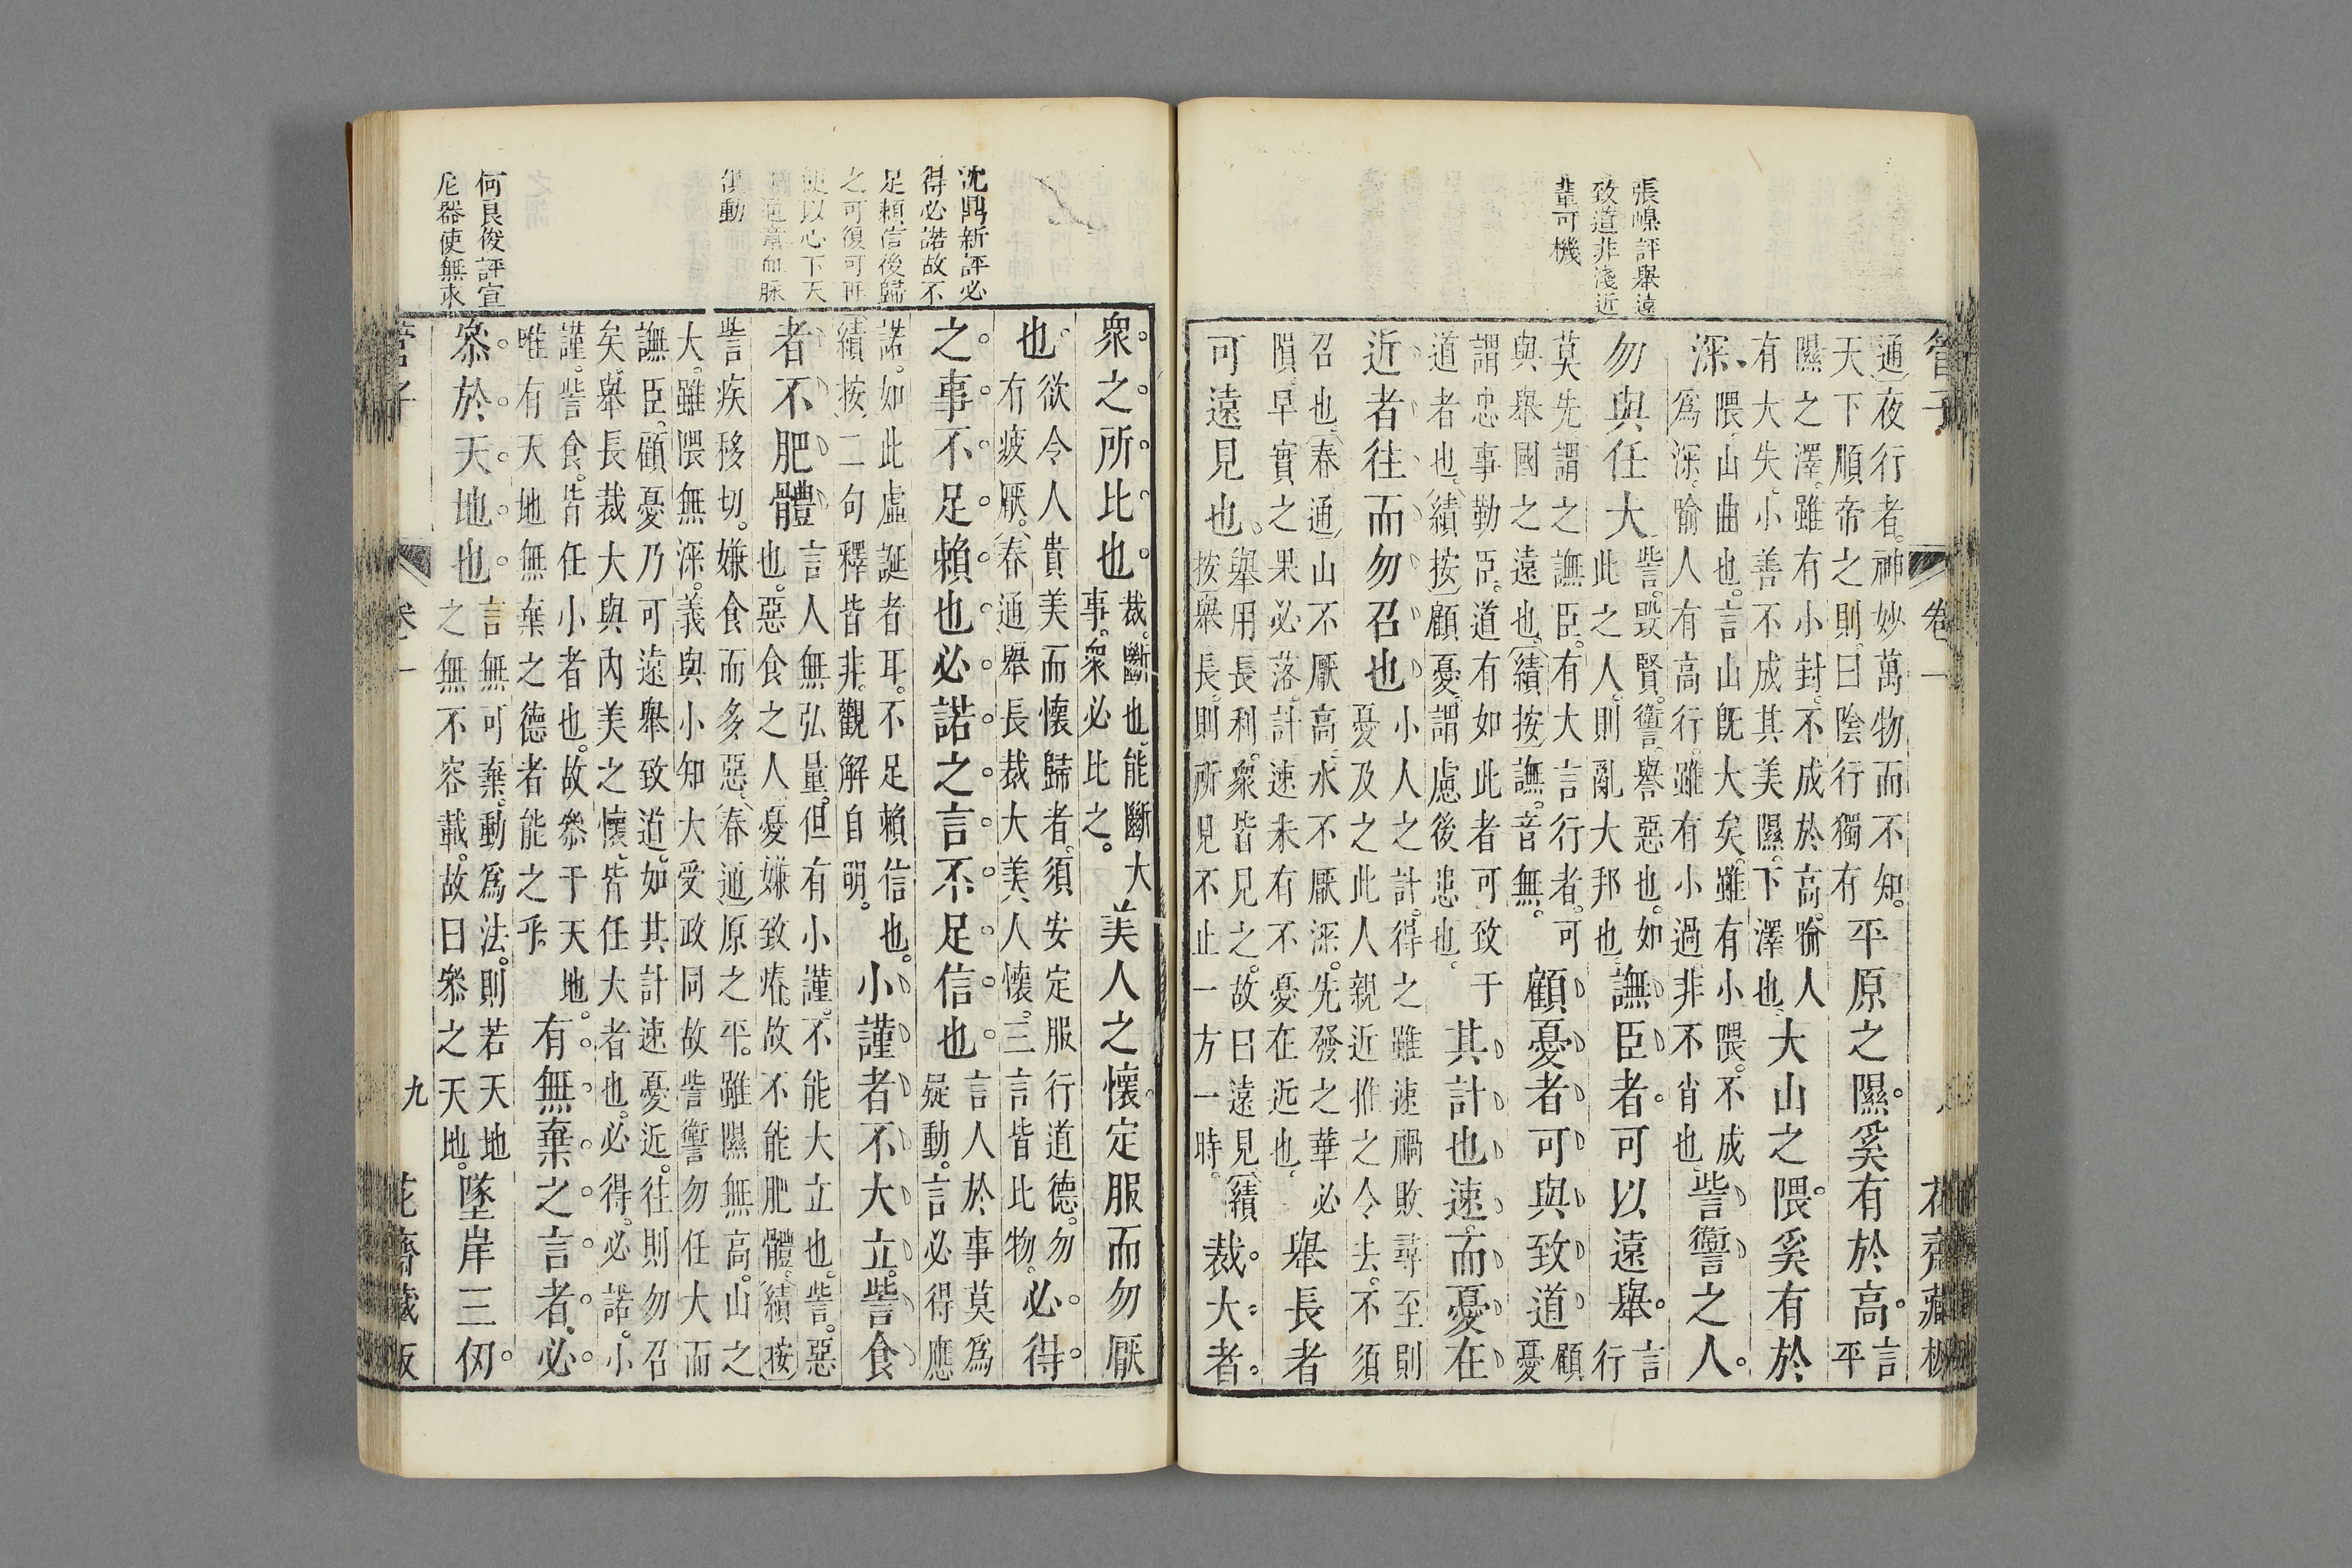 張嵲評舉遠
致道非淺近
輩可機
管子 卷一 花齋藏板
通)夜行者。神妙萬物而不知。
天下順帝之則。曰陰行獨有
平原之隰。奚有於高。
言
平
隰之澤。雖有小封。不成於高。喻人
有大失。小善不成其美。隰。下澤也。
大山之隈。奚有於
深、
隈。山曲也。言山旣大矣。雖有小隈。不成
爲深。喻人有高行。雖有小過。非不肖也。
訾讆之人。
勿與任大
訾。毀賢。讆。譽惡也。如
此之人。則亂大邦也。
譕臣者。可以遠舉。
言
行
莫先謂之譕臣。有大言行者。可
與舉國之遠也。(績按)譕。音無。
顧憂者可與致道
顧
憂
謂忠事勤臣。道有如此者可致于
道者也。(績按)顧憂。謂慮後患也。
其計也速而憂在
近者往而勿召也
小人之計。得之雖速禍敗尋至則
憂及之此人親近推之令去。不須
召也(春通)山不厭高。水不厭深。先發之華必
隕。早實之果必落。計速未有不憂在近也。
舉長者
可遠見也。
舉用長利。衆皆見之。故曰遠見(績
按)舉長。則所見不止一方一時。
裁大者。
沈鼎新評必
得必諾故不
足賴信後歸
之可復可再
使以心下天
意血脉
俱動
何良俊評宣
尼器使無求
衆之所比也。
裁。斷也。能斷大
事。衆必比之。
美人之懷。定服而勿厭
也。
欲令人貴美而懷歸者。須安定服行道德。勿
有疲厭。(春通)舉長裁大美人懷。三言皆比物。
必得
之事。不足賴也。必諾之言。不足信也。
言人於事莫爲
疑動。言必得應
諾。如此虛誕者耳。不足賴信也。
績按)二句釋皆非。觀解自明。
小謹者不大立。訾食
者不肥體
言人無弘量。但有小謹。不能大立也。訾。惡
也。惡食之人憂嫌致瘠。故不能肥體。(績按)
訾疾移切。嫌食而多惡(春通)原之平。雖隰無高。山之
大。雖隈無深。義與小知大受政同故訾讆勿任大而
譕臣。顧憂乃可遠舉致道。如其計速憂近。往則勿召
矣。舉長裁大與內美之懷。皆任大者也。必得。必諾。小
謹。訾食。皆任小者也。故叅于天地。
唯有天地無棄之德者能之乎。
有無棄之言者。必
叅於天地也。
言無可棄。動爲法。則若天地
之無不容載。故曰叅之天地。
墜岸三仞。
管子 卷一 九 花齋藏板